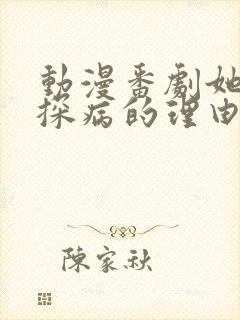 動漫番劇她
探病的理由
陳家秋